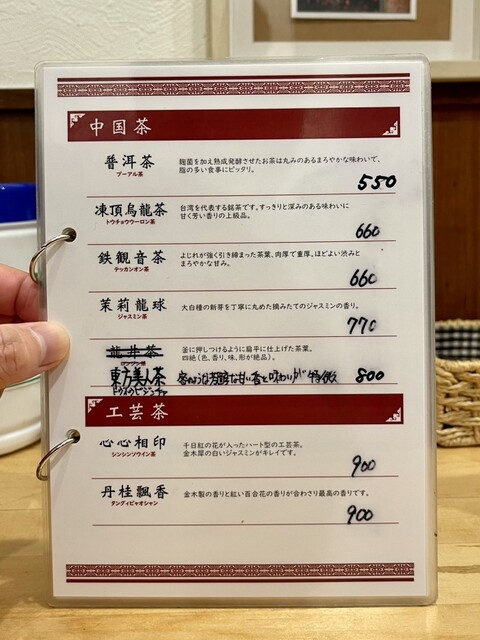 中国茶
普洱茶
プーアル茶
麹菌を加え熟成発酵させたお茶は丸みのあるまろやかな味わいで、
脂の多い食事にピッタリ。
550
凍頂烏龍茶
トウチョウウーロン茶
台湾を代表する銘茶です。すっきりと深みのある味わいに
甘く芳い香りの上級品。
660
鉄観音茶
テッカンオン茶
よじれが強く引き締まった茶葉、肉厚で重厚。ほどよい渋みと
まろやかな甘み。
660
茉莉龍球
ジャスミン茶
大白種の新芽を丁寧に丸めた摘みたてのジャスミンの香り。
770
龍井茶
釜に押しつけるように扁平に仕上げた茶葉。
四絶(色、香り、味、形が絶品)。
東方美人茶
蜜のような芳醇な甘い香と味わいが特徴
800
工芸茶
心心相印
シンシンソウイン茶
千日紅の花が入ったハート型の工芸茶。
金木犀の白いジャスミンがキレイです。
900
丹桂飄香
タングィピャオシャン
金木製の香りと紅い百合花の香りが合わさり最高の香りです。
900